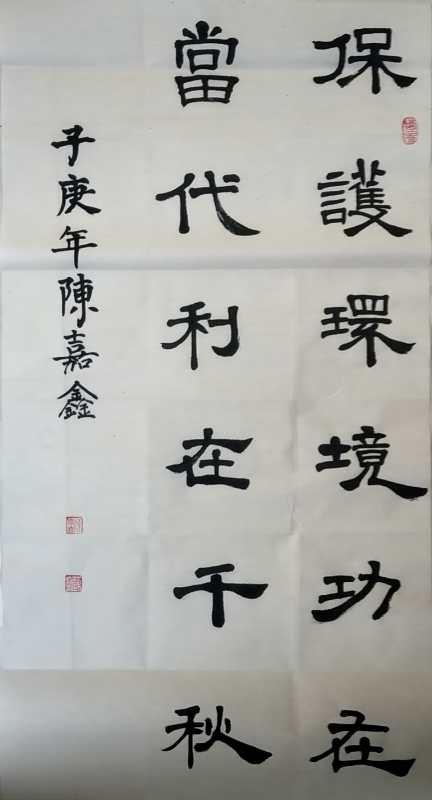 保護環境功在
當代利在千秋
子庚年陳嘉鑫